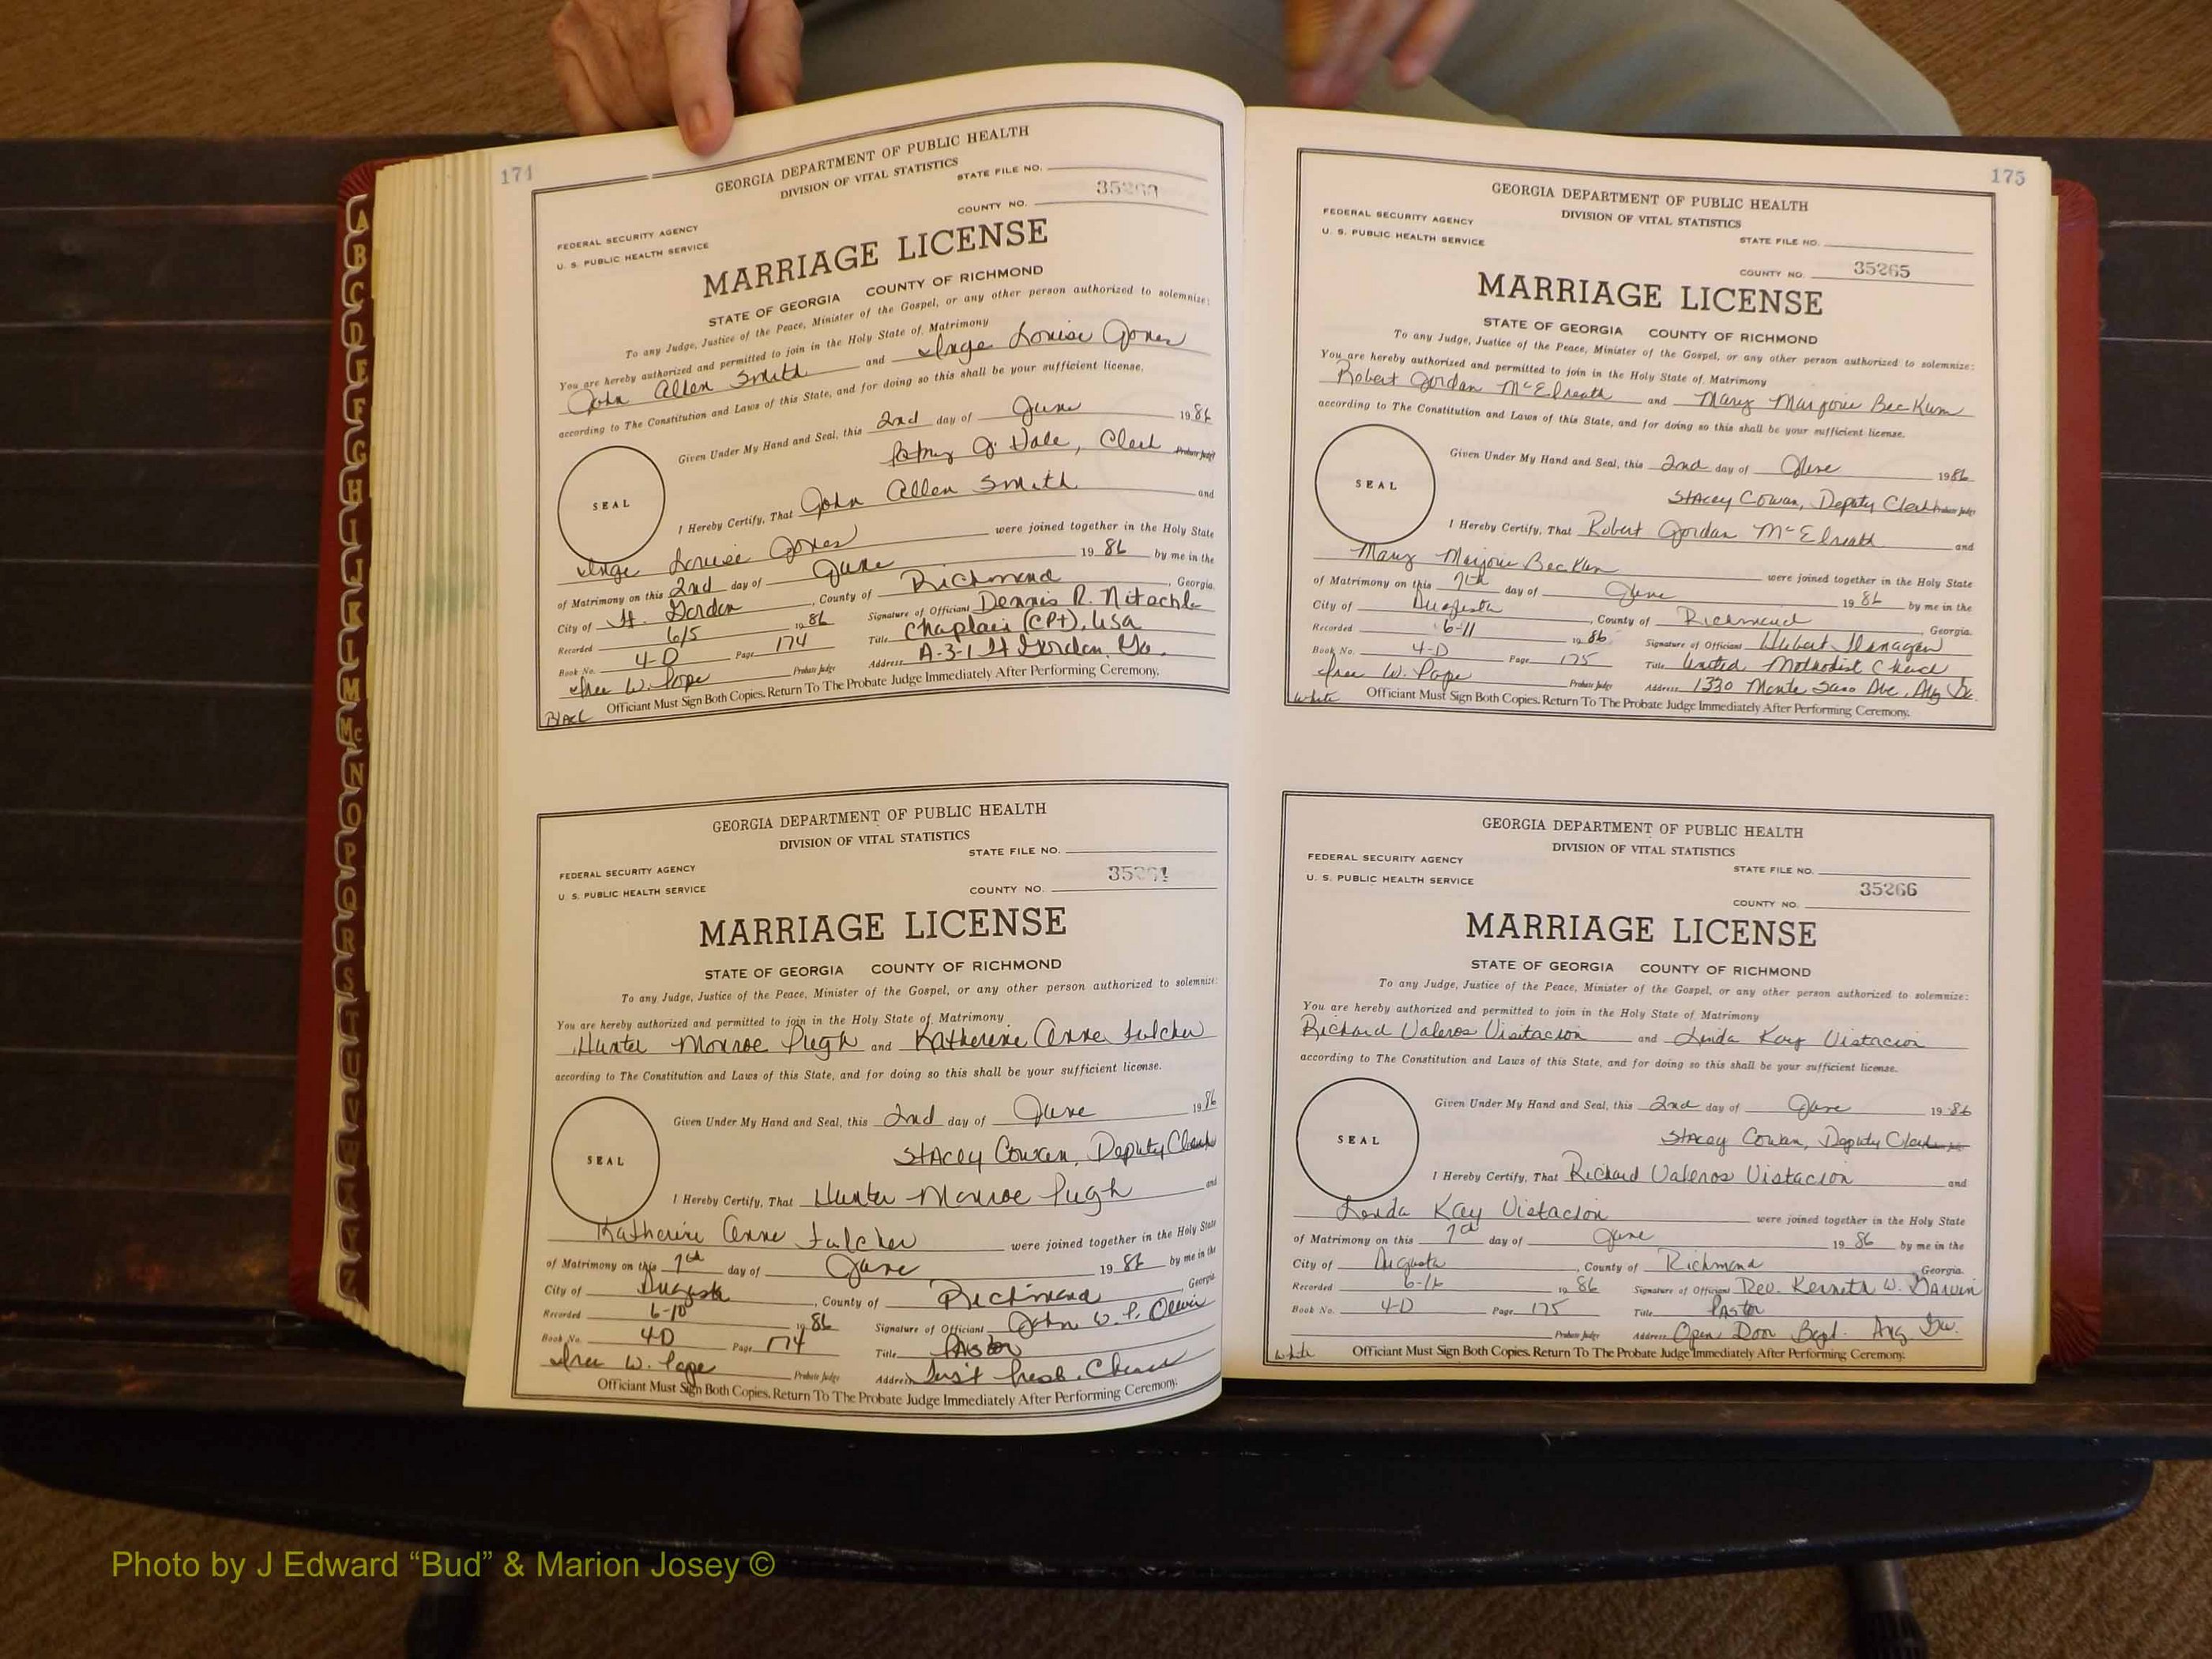 174
GEORGIA DEPARTMENT OF PUBLIC HEALTH
DIVISION OF VITAL STATISTICS
STATE FILE NO.
FEDERAL SECURITY AGENCY
U. S. PUBLIC HEALTH SERVICE
COUNTY NO. 35263
MARRIAGE LICENSE
STATE OF GEORGIA COUNTY OF RICHMOND
To any Judge, Justice of the Peace, Minister of the Gospel, or any other person authorized to solemnize:
You are hereby authorized and permitted to join in the Holy State of Matrimony
John Allen Smith and Inge Louise Jones
according to The Constitution and Laws of this State, and for doing so this shall be your sufficient license.
Given Under My Hand and Seal, this 2nd day of June 1986
J. Hale, Clerk Probate Judge
SEAL
I Hereby Certify, That John Allen Smith and
Inge Louise Jones were joined together in the Holy State
of Matrimony on this 2nd day of June 1986 by me in the
City of Ft. Gordon, County of Richmond, Georgia.
Recorded 6/5 1986 Signature of Officiant Dennis R. Nitschke
Book No. 4-D Page 174 Title Chaplain (CPt), USA
W. Pope Probate Judge Address A-3-1 Ft Gordon, Ga.
Officiant Must Sign Both Copies. Return To The Probate Judge Immediately After Performing Ceremony.
Black
GEORGIA DEPARTMENT OF PUBLIC HEALTH
DIVISION OF VITAL STATISTICS
STATE FILE NO.
FEDERAL SECURITY AGENCY
U. S. PUBLIC HEALTH SERVICE
COUNTY NO. 35264
MARRIAGE LICENSE
STATE OF GEORGIA COUNTY OF RICHMOND
To any Judge, Justice of the Peace, Minister of the Gospel, or any other person authorized to solemnize:
You are hereby authorized and permitted to join in the Holy State of Matrimony
Hunter Monroe Pugh and Katherine Anne Fulcher
according to The Constitution and Laws of this State, and for doing so this shall be your sufficient license.
Given Under My Hand and Seal, this 2nd day of June 1986
Stacey Cowan, Deputy Clerk
SEAL
I Hereby Certify, That Hunter Monroe Pugh and
Katherine Anne Fulcher were joined together in the Holy State
of Matrimony on this 7th day of June 1986 by me in the
City of Augusta, County of Richmond Georgia
Recorded 6-10 1986 Signature of Officiant John W. P.
Book No. 4-D Page 174 Title Pastor
W. Pope Probate Judge Address First Presb. Church
Officiant Must Sign Both Copies. Return To The Probate Judge Immediately After Performing Ceremony.
175
GEORGIA DEPARTMENT OF PUBLIC HEALTH
DIVISION OF VITAL STATISTICS
FEDERAL SECURITY AGENCY
U. S. PUBLIC HEALTH SERVICE
STATE FILE NO.
COUNTY NO. 35265
MARRIAGE LICENSE
STATE OF GEORGIA COUNTY OF RICHMOND
To any Judge, Justice of the Peace, Minister of the Gospel, or any other person authorized to solemnize:
You are hereby authorized and permitted to join in the Holy State of Matrimony
Robert Gordan McElreath and Mary Marjorie Beckum
according to The Constitution and Laws of this State, and for doing so this shall be your sufficient license.
Given Under My Hand and Seal, this 2nd day of June 1986
Stacey Cowan, Deputy Clerk Probate Judge
SEAL
I Hereby Certify, That Robert Gordan McElreath and
Mary Marjorie Beckum were joined together in the Holy State
of Matrimony on this 7th day of June 1986 by me in the
City of Augusta, County of Richmond Georgia.
Recorded 6-11 1986 Signature of Officiant Hubert Flanagan
Book No. 4-D Page 175 Title United Methodist Church
W. Pope Probate Judge Address 1330 Monte Sano Ave, Aug Ga.
White
Officiant Must Sign Both Copies. Return To The Probate Judge Immediately After Performing Ceremony.
GEORGIA DEPARTMENT OF PUBLIC HEALTH
DIVISION OF VITAL STATISTICS
FEDERAL SECURITY AGENCY
U. S. PUBLIC HEALTH SERVICE
STATE FILE NO.
35266
COUNTY NO.
MARRIAGE LICENSE
STATE OF GEORGIA COUNTY OF RICHMOND
To any Judge, Justice of the Peace, Minister of the Gospel, or any other person authorized to solemnize:
You are hereby authorized and permitted to join in the Holy State of Matrimony
Richard Valeros Visitacion and Linda Kay Vistacion
according to The Constitution and Laws of this State, and for doing so this shall be your sufficient license.
Given Under My Hand and Seal, this 2nd day of June 1986
Stacey Cowan, Deputy Clerk
SEAL
I Hereby Certify, That Richard Valeros Vistacion and
Linda Kay Vistacion were joined together in the Holy State
of Matrimony on this 7th day of June 1986 by me in the
City of Augusta, County of Richmond Georgia.
Recorded 6-16 1986 Signature of Officiant Rev. Kenneth W.
Book No. 4-D Page 175 Title Pastor
Probate Judge Address Open Door Bapt. Aug Ga.
White
Officiant Must Sign Both Copies. Return To The Probate Judge Immediately After Performing Ceremony.
A
B
C
D
E
F
G
H
I
J
K
L
M
Mc
N
O
P
Q
R
S
T
U
V
W
X
Y
Z
Photo by J Edward “Bud” & Marion Josey ©